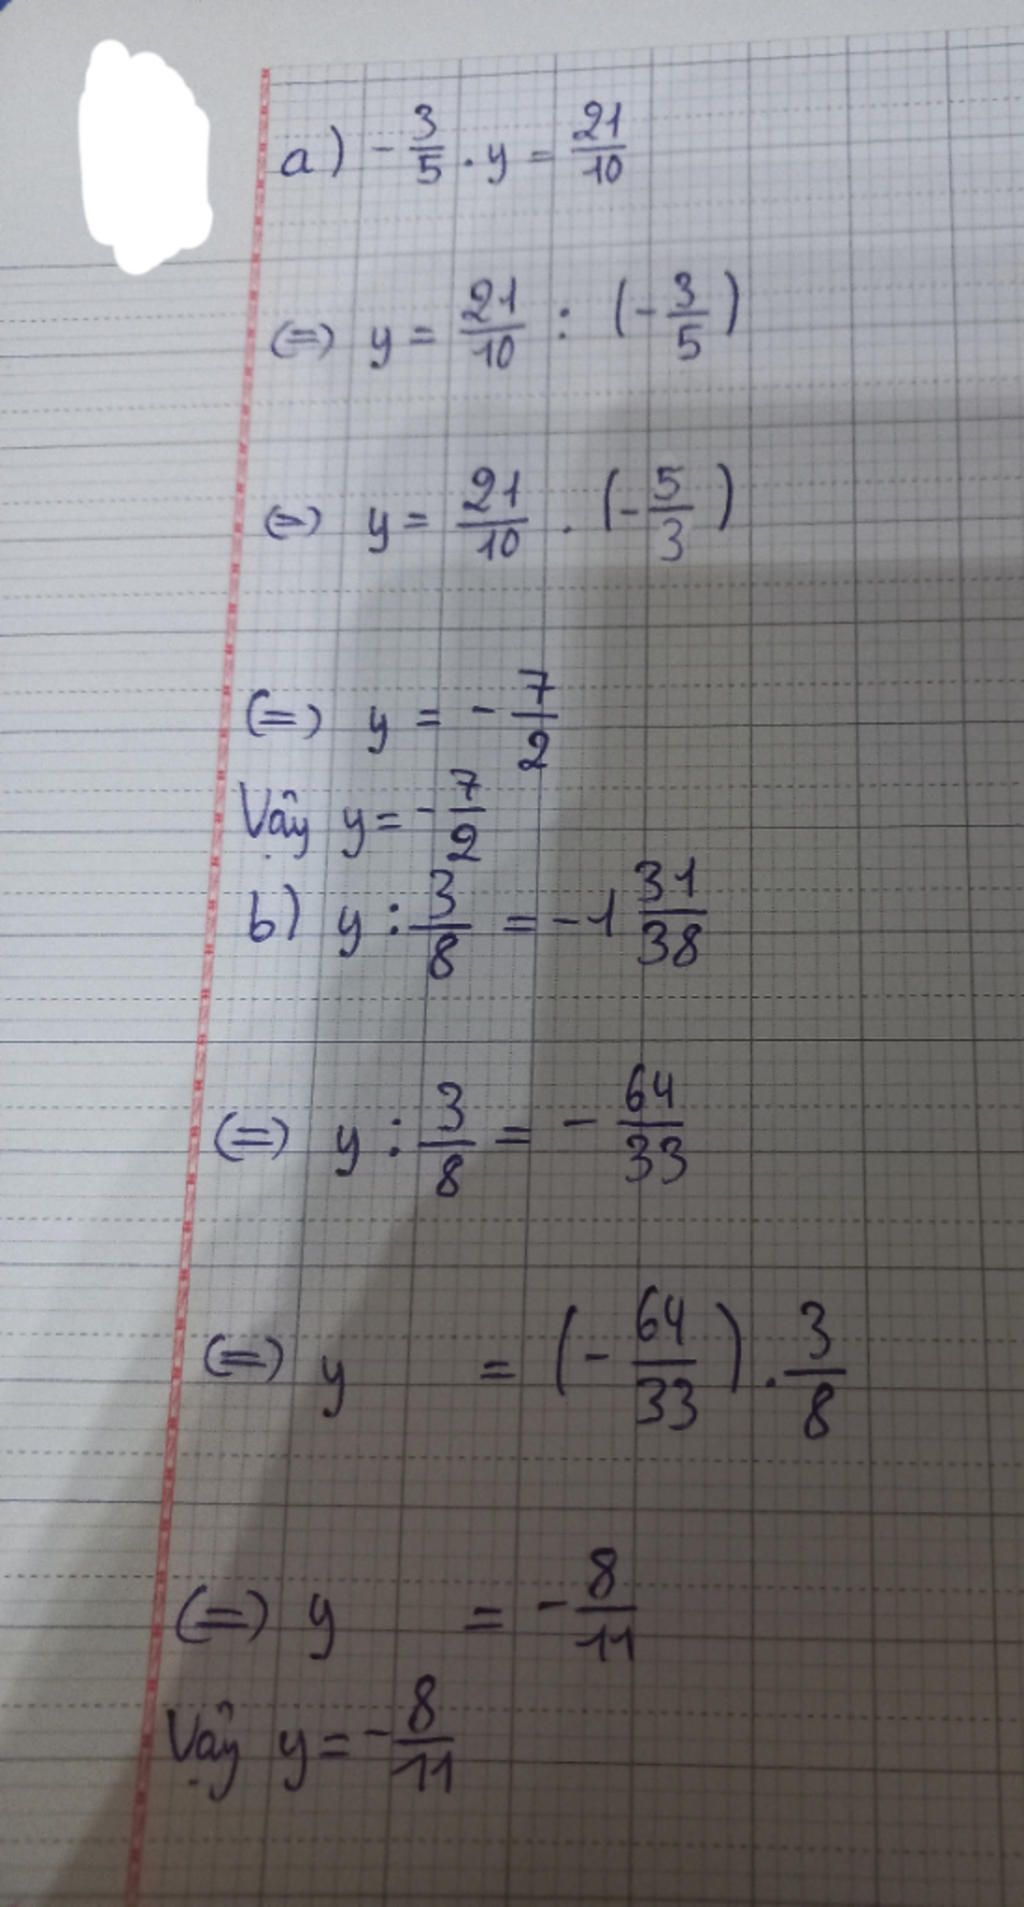 a) -3/5 . y = 21/10
(=) y = 21/10 : (-3/5)
(=) y = 21/10 . (-5/3)
(=) y = -7/2
Vậy y = -7/2
b) y : 3/8 = -1 31/38
(=) y : 3/8 = -64/33
(=) y = (-64/33) . 3/8
(=) y = -8/11
Vậy y = -8/11